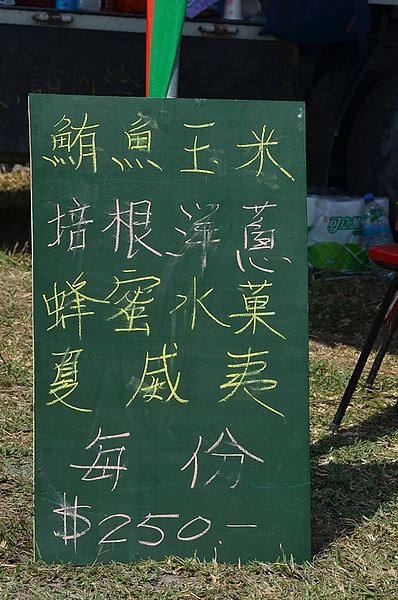 鮪魚玉米
培根洋蔥
蜂蜜水菓
夏威夷
每份
$250.-